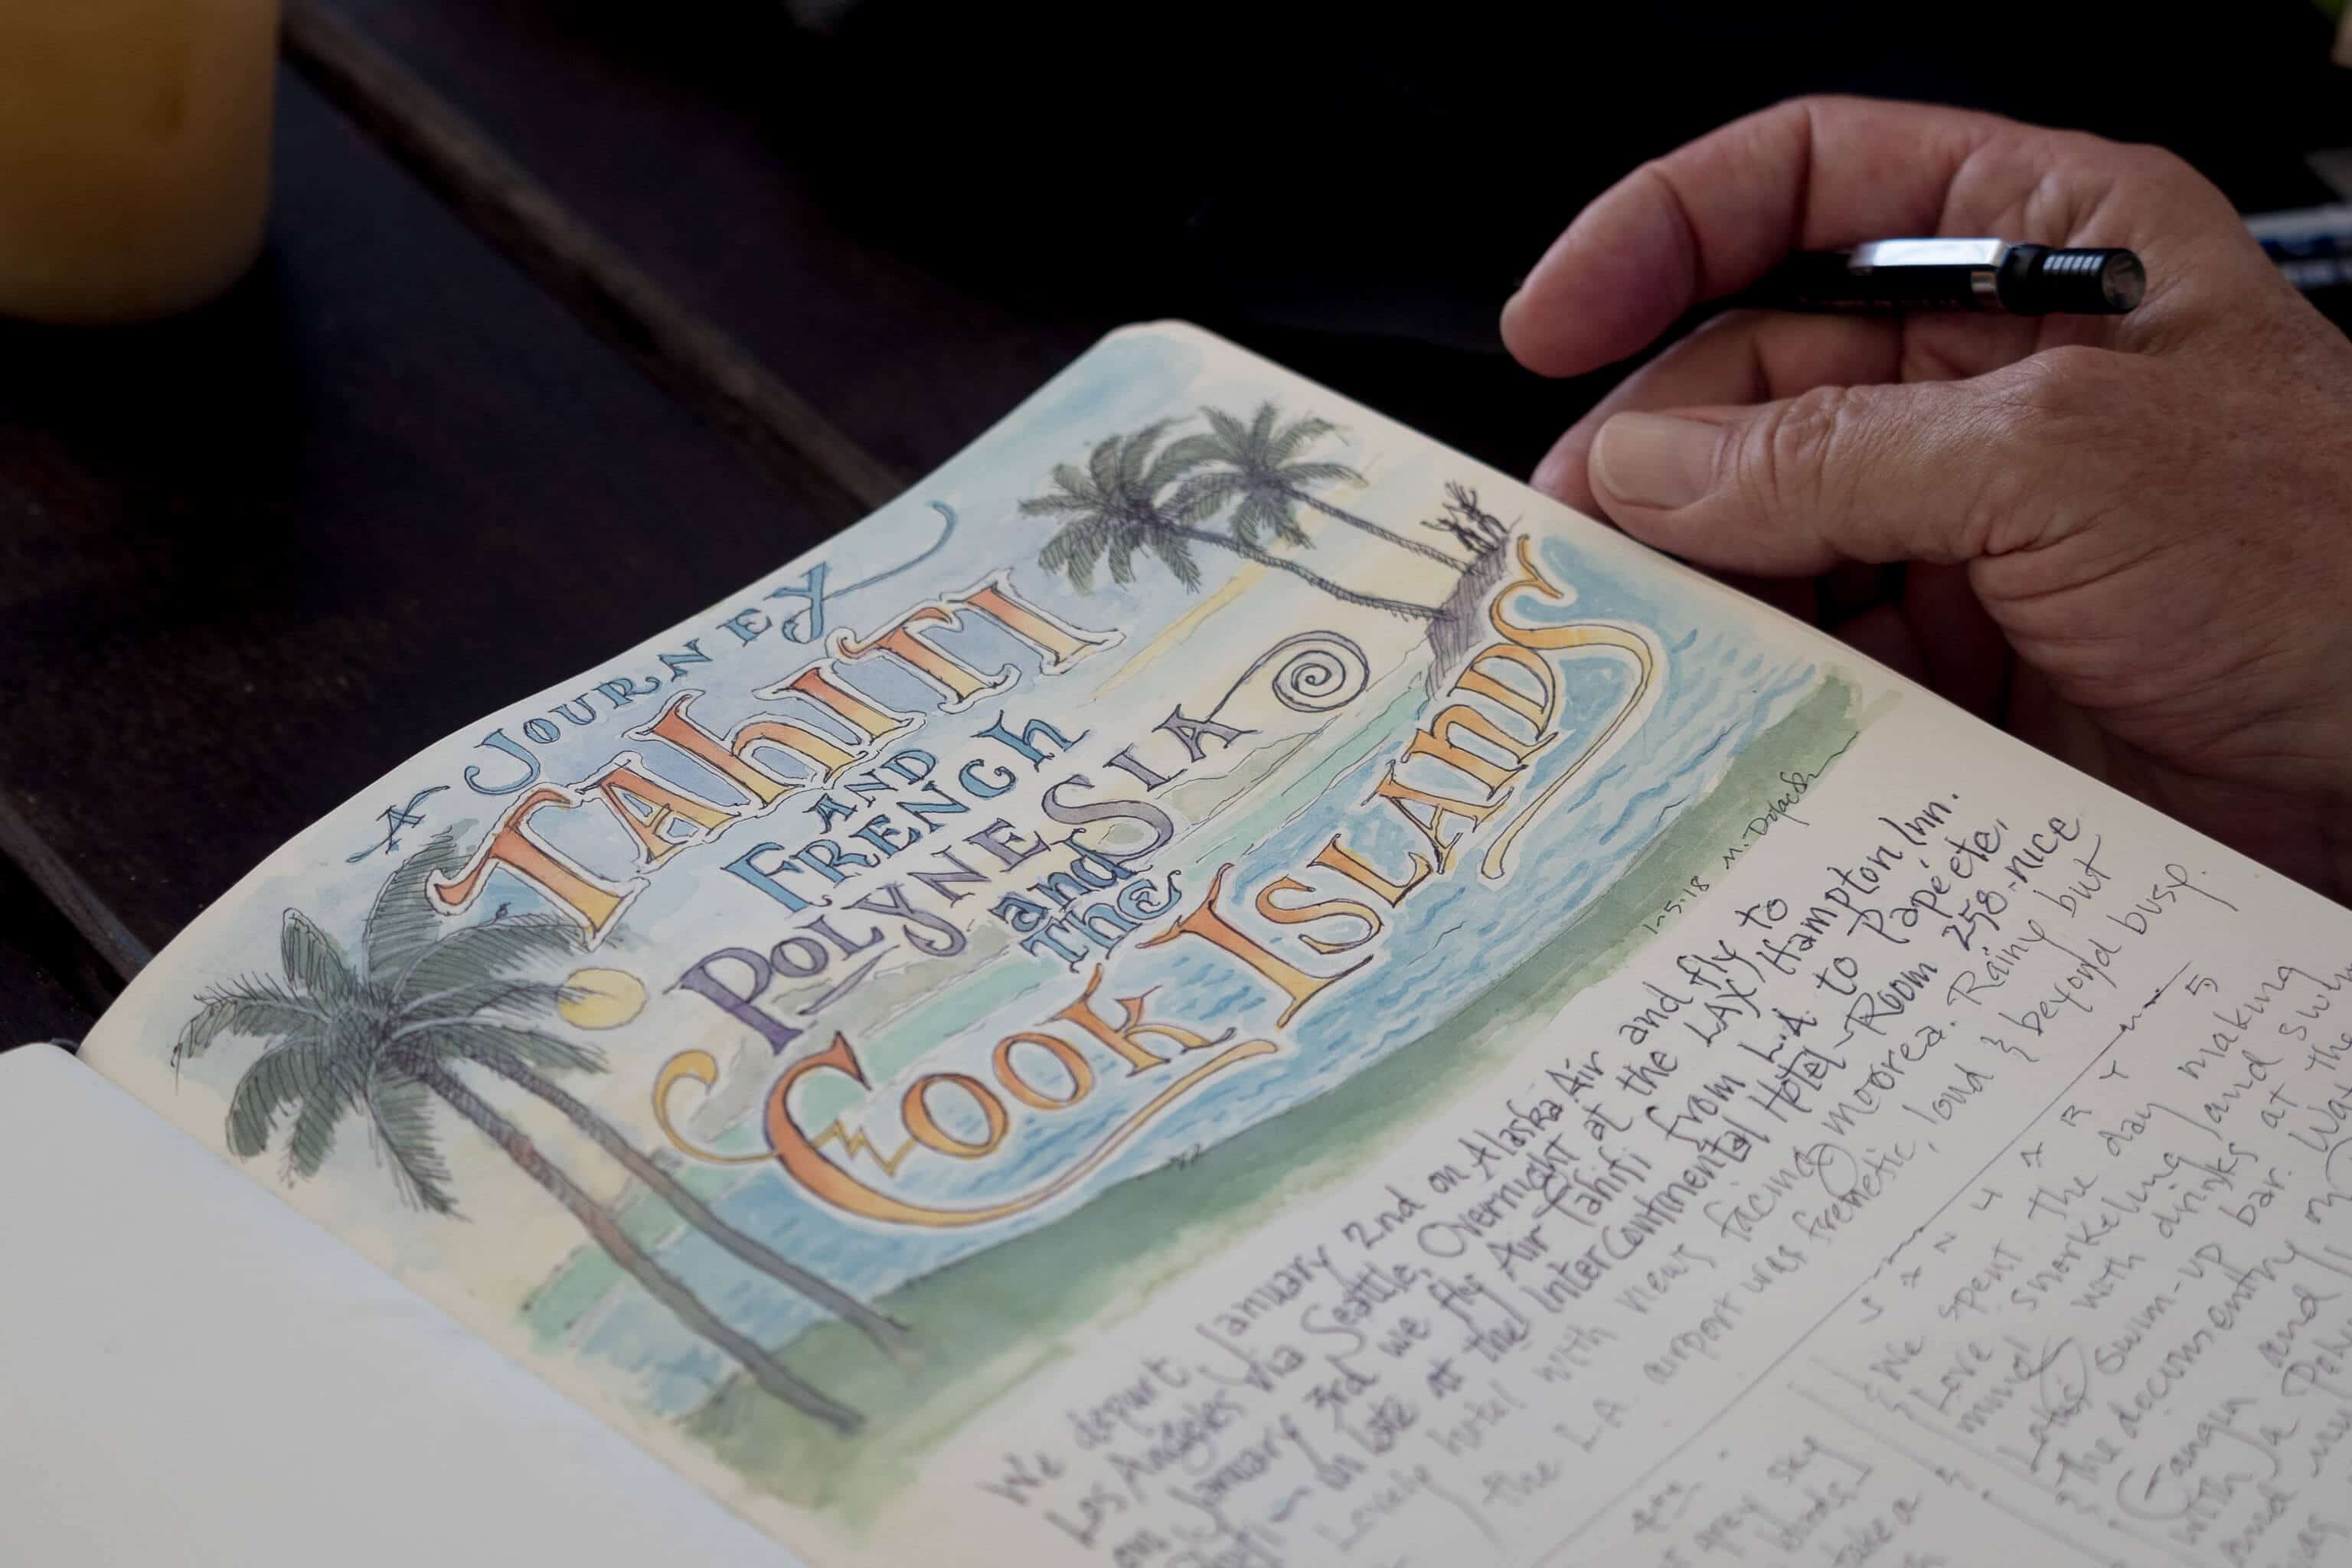 A JOURNEY
TAhITI
AND
FRENCh
POLYNESIA
and
ThE
COOK ISLANDS
1-5-18 M. Dolack
We depart January 2nd on Alaska Air and fly to
Los Angeles via Seattle. Overnight at the LAX Hampton Inn.
on January 3rd we fly Air Tahiti from L.A. to Papeete,
in late at the InterContinental Hotel - Room 258 - nice
Lovely hotel with views facing moorea. Rainy but
the LA airport was frenetic, loud & beyond busy.
JANUARY 5
We spent the day making
Love, snorkeling and
with drinks at
swim-up bar.
the documentary
and
with
and
grey sky
take a